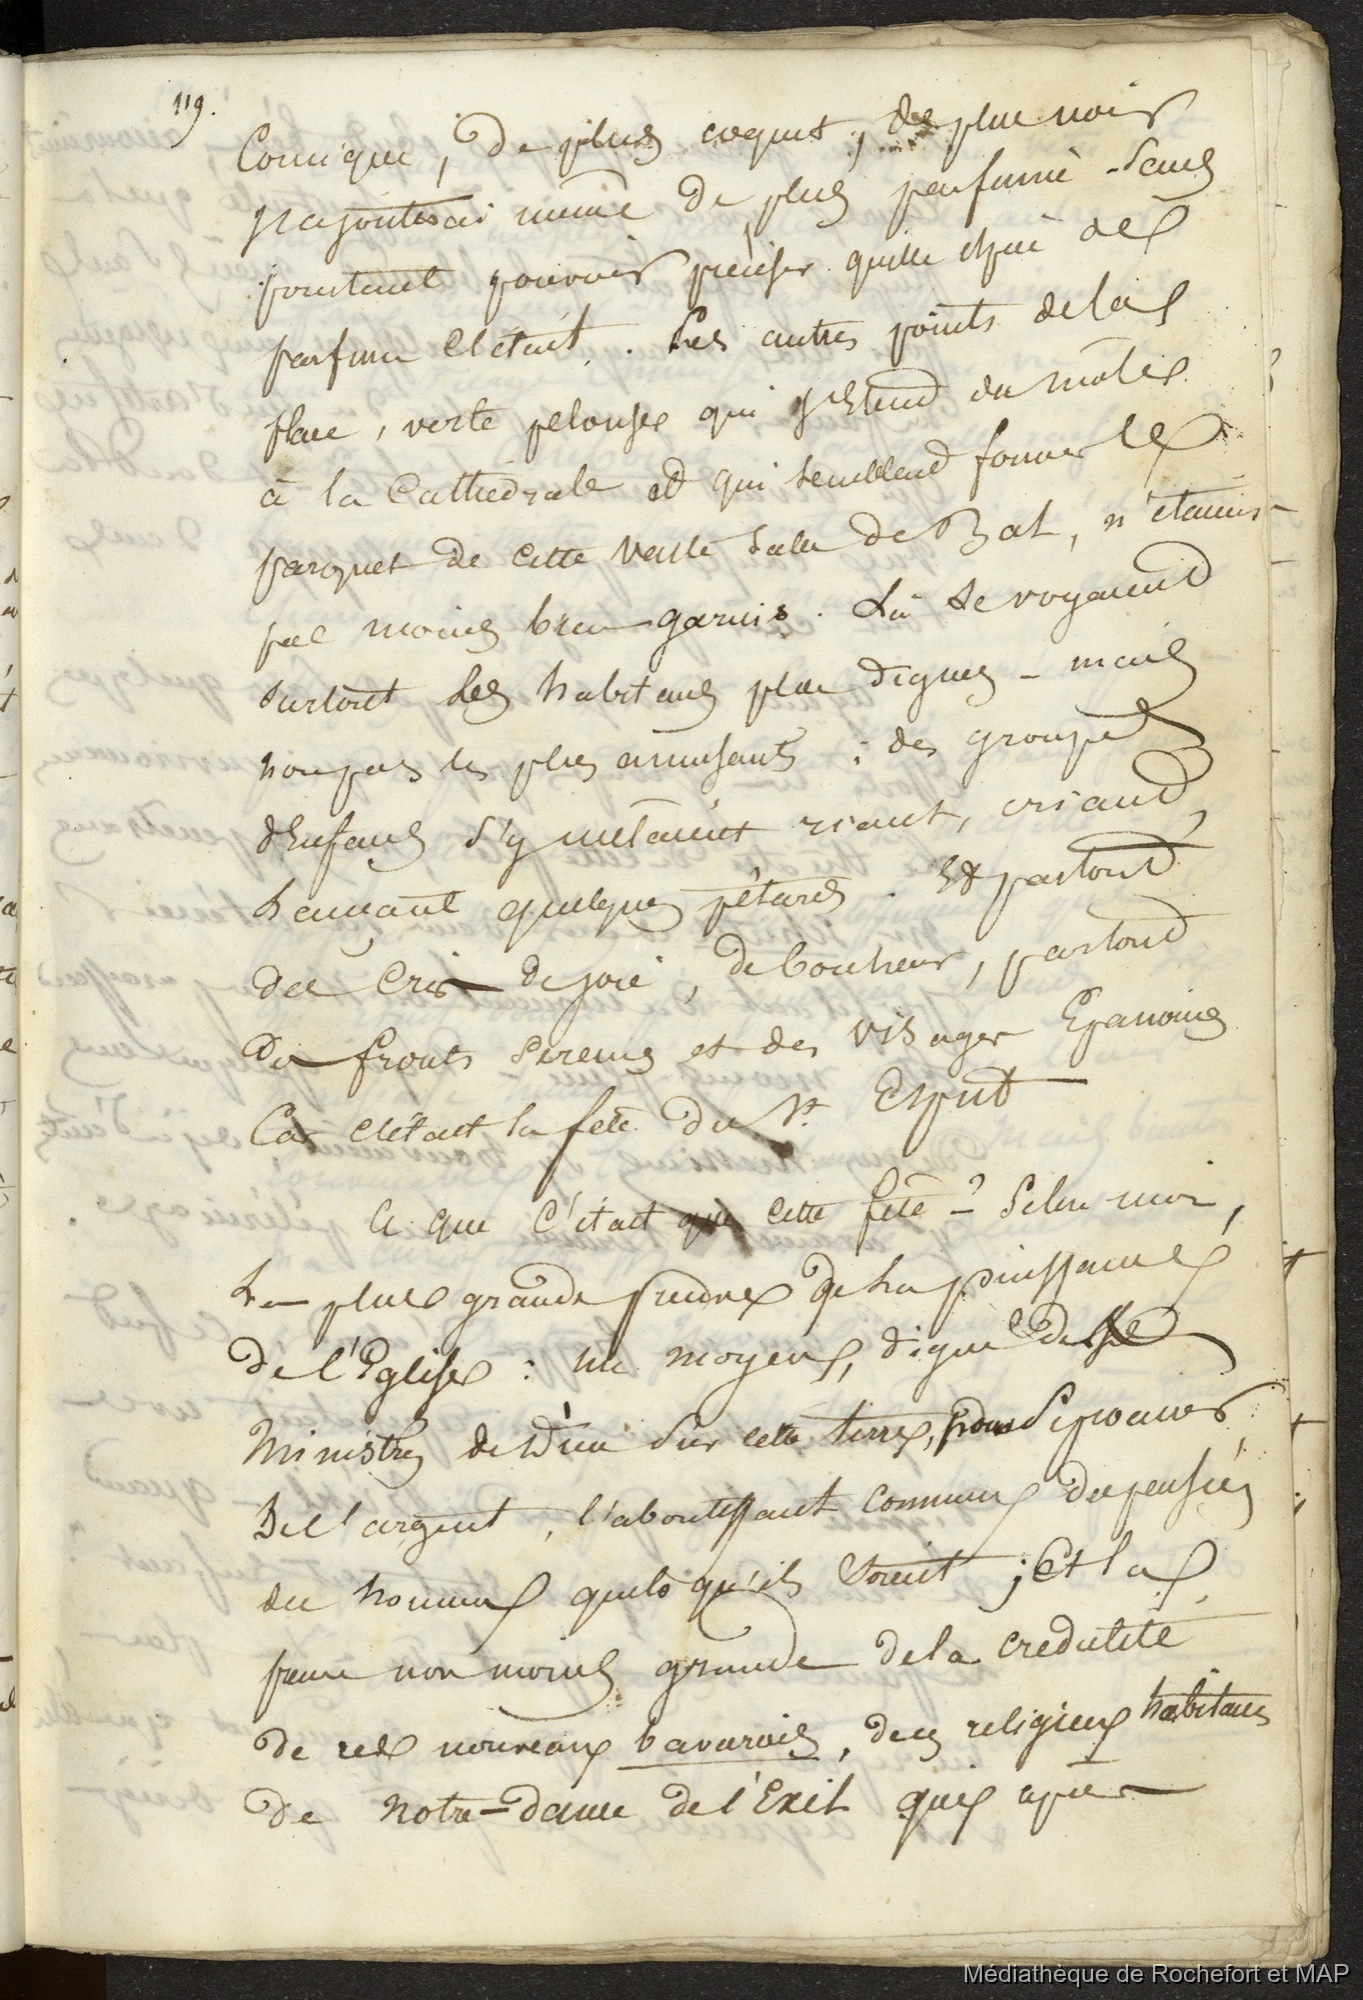 119.
Comique, de plus coquet, de plus noir
j'ajouterai même de plus parfumé - Sans
pourtant pouvoir préciser quelle espèce de
parfum c'était. Les autres points de la
place, verte pelouse qui s'étend du môle
à la Cathédrale et qui semblent former le
parquet de cette vaste salle de Bal, n'étaient
pas moins bien garnis. Là se voyaient
surtout les habitans plus dignes - mais
non pas les plus amusants : des groupes
d'Enfans s'y mêlaient riant, criant,
lançant quelques pétards. Et partout
des cris de joie, de bonheur, partout
Des fronts sereins et des visages Epanouis
Car c'était la fête du St. Esprit
Ce que c'était que cette fête - ? Selon moi,
La plus grande preuve de la puissance
de l'Eglise : un moyen, digne des
Ministres de Dieu sur cette terre, pour se procurer
De l'argent, l'aboutissant commun des pensées
des hommes quels qu'ils soient ; Et la
preuve non moins grande de la credulité
de ces nouveaux bavarois, des religieux habitans
de Notre-Dame de l'Exil qui